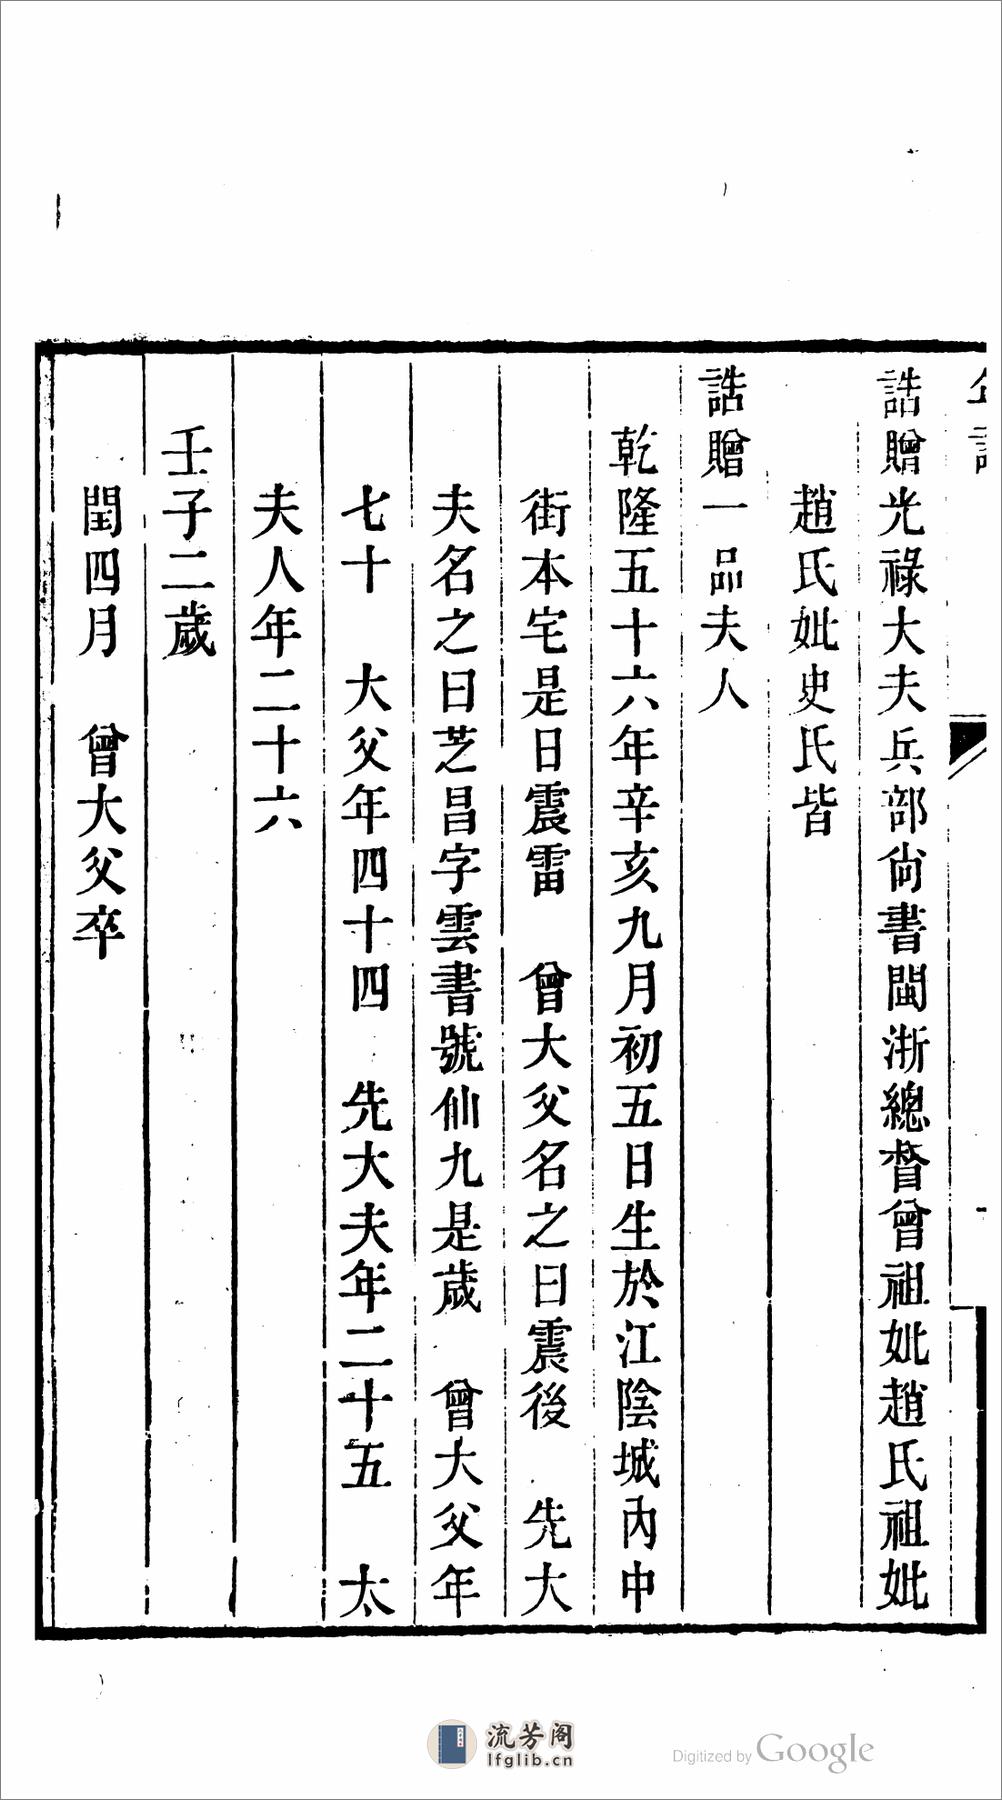 誥贈光祿大夫兵部尙書閩浙總督曾祖妣趙氏祖妣
趙氏妣史氏皆
誥贈一品夫人
乾隆五十六年辛亥九月初五日生於江陰城內中
街本宅是日震雷　曾大父名之曰震後　先大
夫名之曰芝昌字雲書號仙九是歲　曾大父年
七十　大父年四十四　先大夫年二十五　太
夫人年二十六
壬子二歲
閏四月　曾大父卒
流芳阁
lfglib.cn
Digitized by Google